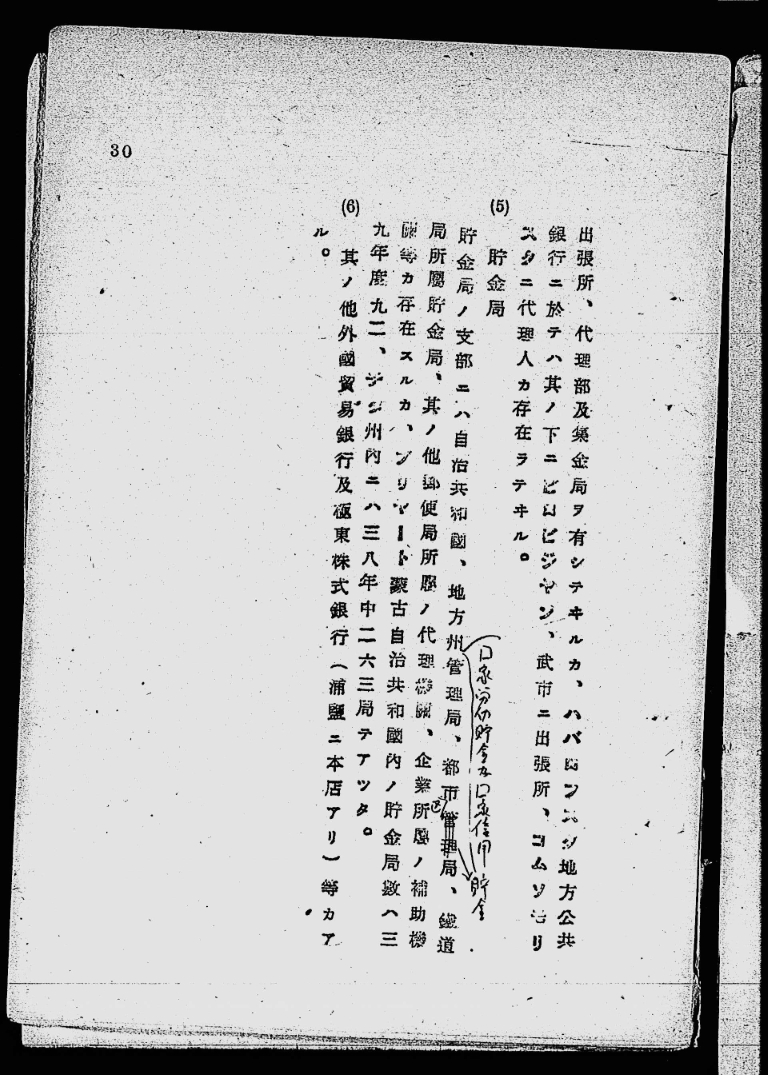 30
出張所、代理部及集金局ヲ有シテヰルカ、ハバロフスク地方公共
銀行ニ於テハ其ノ下ニビロビジヤン、武市ニ出張所、コムソモリ
スクニ代理人カ存在ラテヰル。
(5) 貯金局
貯金局ノ支部ニハ自治共和國、地方州管理局、都市管理局、鐵道
局所屬貯金局、其ノ他郵便局所屬ノ代理機關、企業所屬ノ補助機
關等カ存在スルカ、ブリヤート蒙古自治共和國内ノ貯金局數ハ三
九年度九二、チタ州内ニハ三八年中二六三局テアツタ。
(6) 其ノ他外國貿易銀行及極東株式銀行(浦鹽ニ本店アリ)等カア
ル。